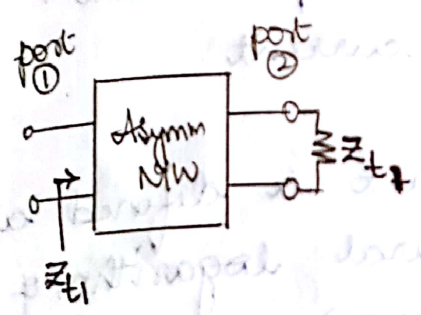 port
①
port
②
Asymm
N/W
Z_t1